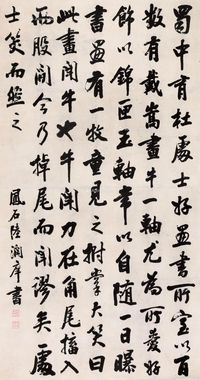 蜀中有杜處士好畫書所寶以百
數有戴嵩畫牛一軸尤為所愛好
飾以錦匣玉軸常以自隨一日曝
書畫有一牧童見之拊掌大笑曰
此畫鬥牛也牛鬥力在角尾搐入
兩股間今乃掉尾而鬥謬矣處
士笑而然之
鳳石陸潤庠書